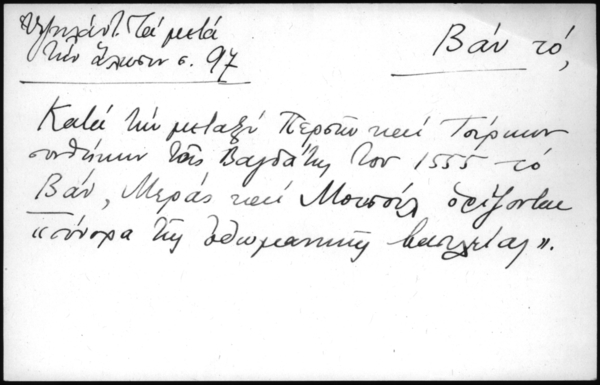 Ὑψηλάντ. Τά μετά
τήν ἅλωσιν σ. 97
Βάν τό,
Κατά τήν μεταξύ Περσῶν καί Τούρκων
συνθήκην τῆς Βαγδάτης τοῦ 1555 τό
Βάν, Μεράς καί Μουσούλ ὁρίζονται
"σύνορα τῆς ὀθωμανικῆς βασιλείας".